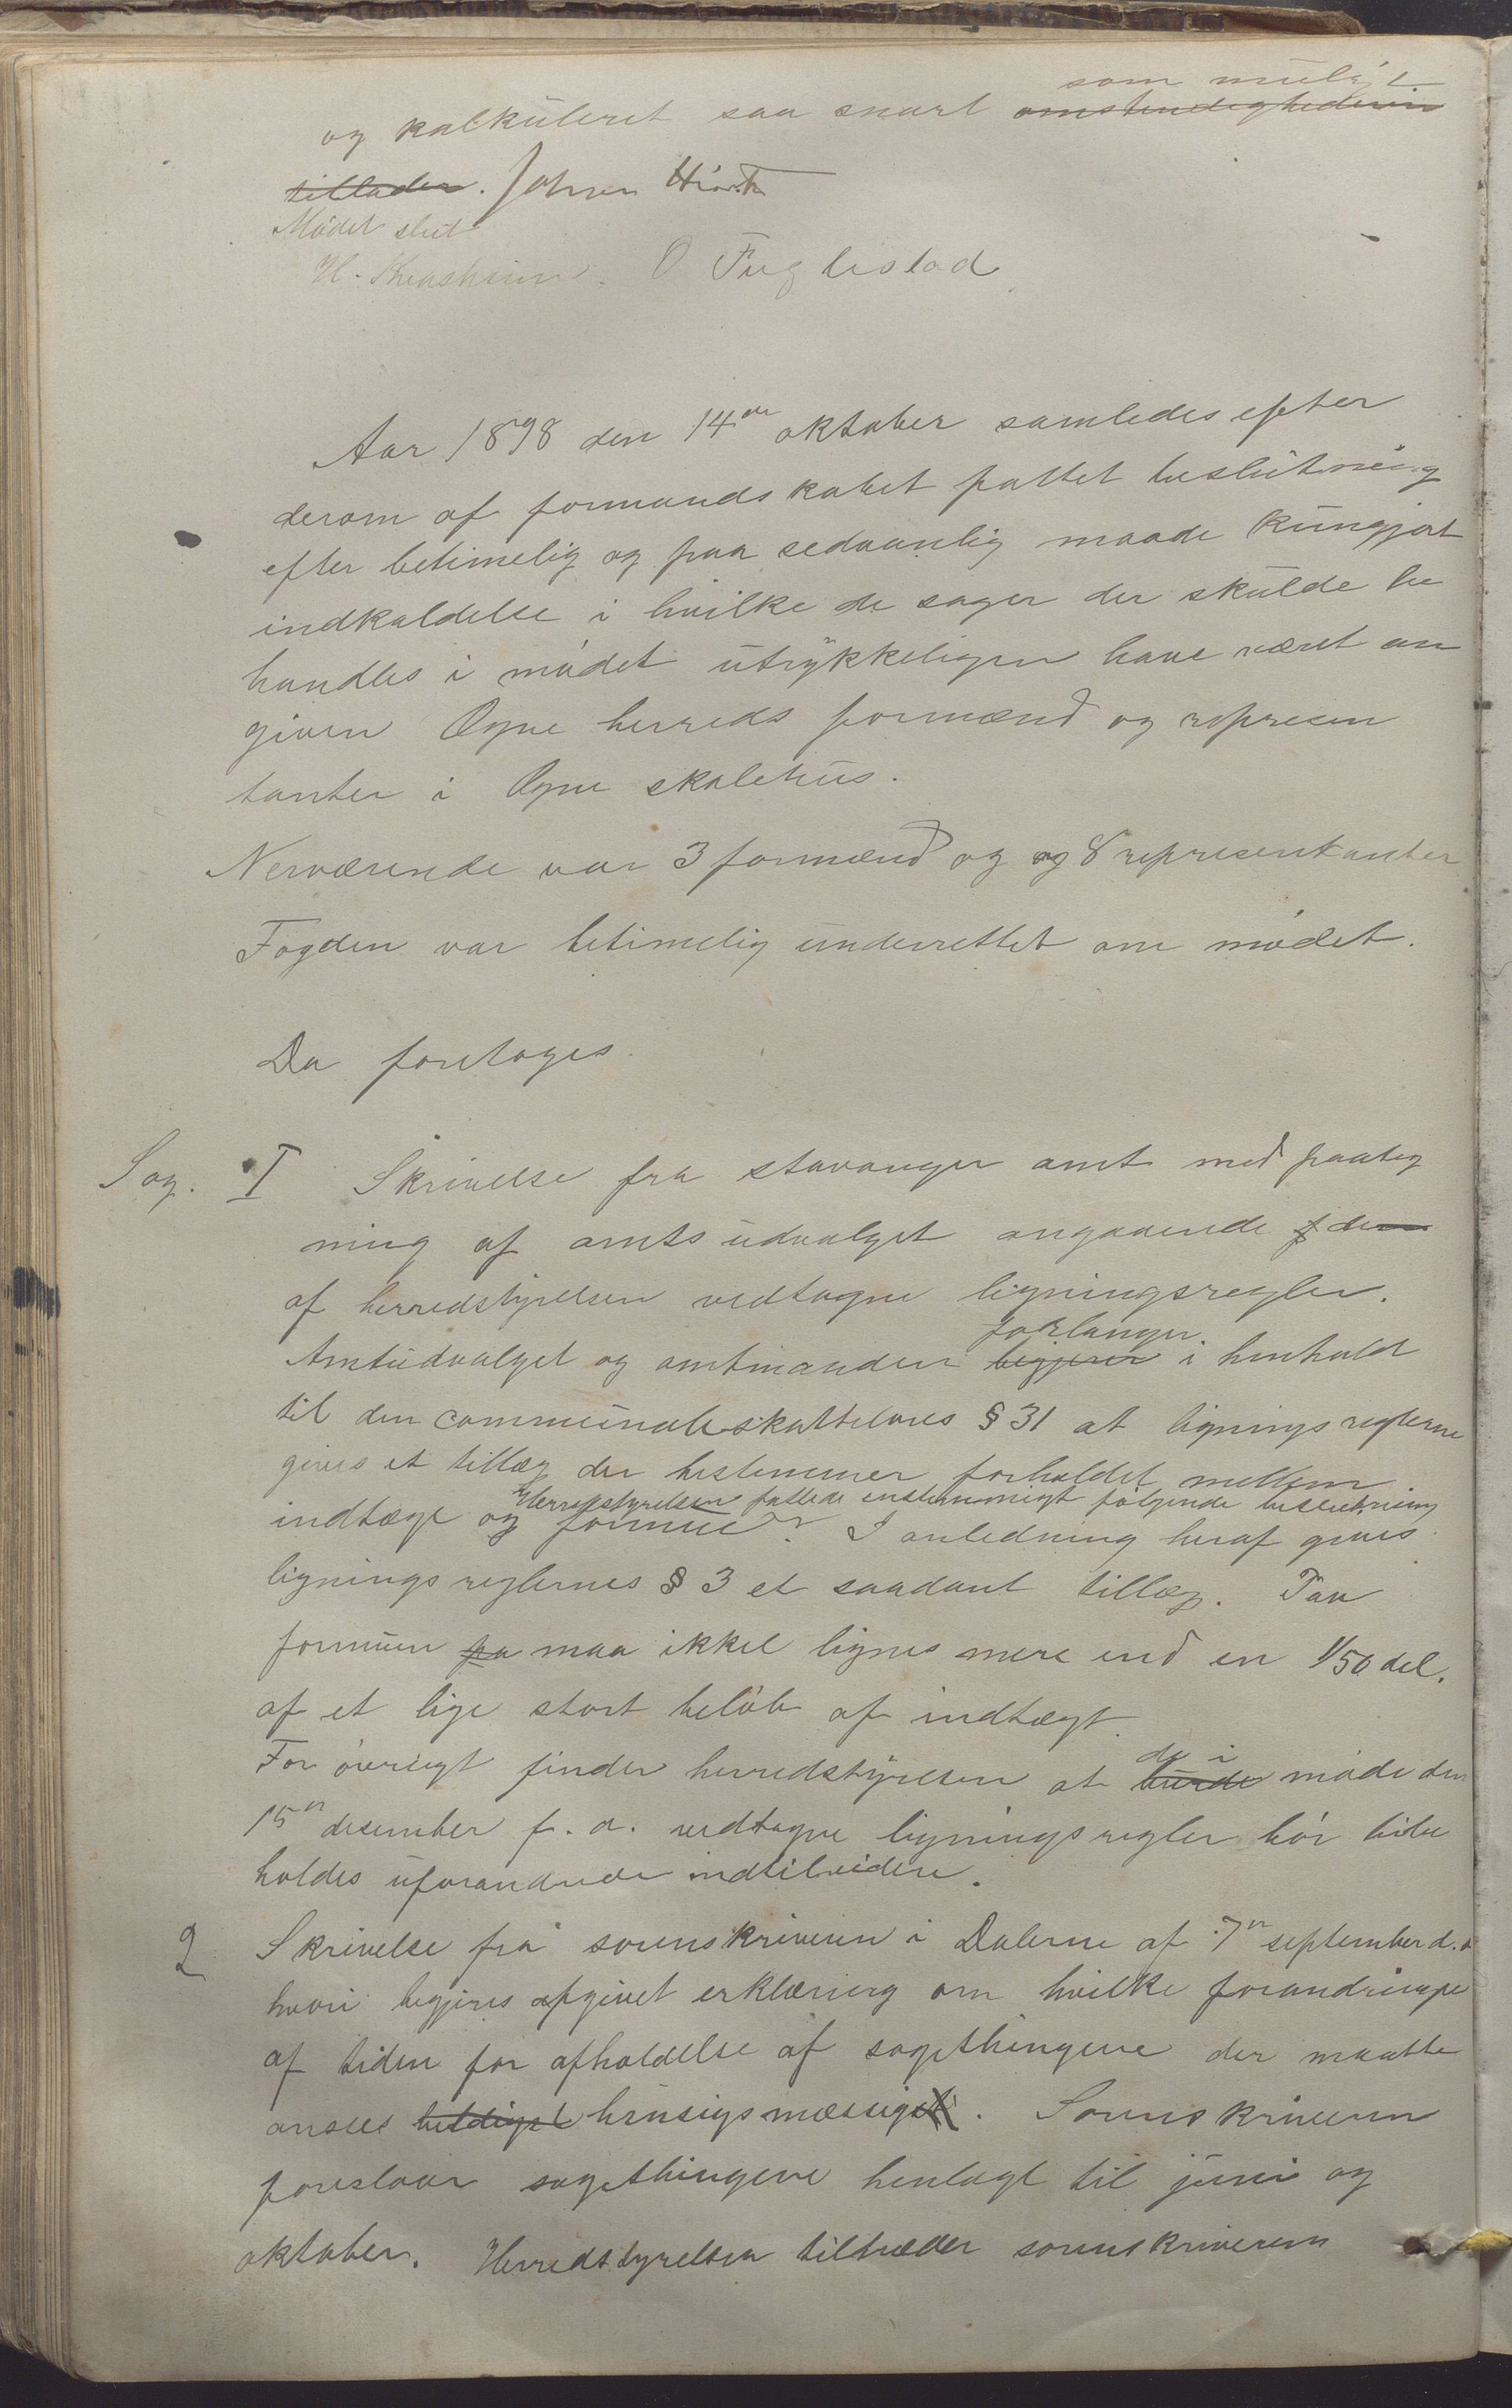 som muligt
og kalkuleret saa snart omstendighederne
tillader. Johan Hiorth
Mødet slut
O Fuglestad
Aar 1898 den 14de oktober samledes efter
derom af formandskabet fattet beslutning
efter betimelig og paa sedvanlig maade kungjort
indkaldelse i hvilke de sager der skulde be
handles i mødet utrykkeligen have været an
given Ogne herreds formænd og represen
tanter i Ogne skolehus.
Nerværende var 3 formænd og og 8 representanter
Fogden var betimelig underrettet om mødet.
Da foretoges.
Sag. I Skrivelse fra stavanger amt med paateg
ning af amtsudvalget angaaende f den
af herredstyrelsen vedtagne ligningsregler.
forlanger.
Amtudvalget og amtmanden begjerer i henhold
til den communaleskattelovs § 31 at ligningsreglerne
gives et tillæg der bestemmer forholdet mellem
Herredstyrelsen fattede enstemmigt følgende beslutning
indtægt og formue. I anledning heraf gives
ligningsreglernes § 3 et saadant tillæg. Paa
formuen pa maa ikkel lignes mere end en 1/50 del.
af et lige stort beløb af indtægt.
For øvrigt finder herredstyrelsen at burde de i møde den
15n desember f. a. vedtagne ligningsregler bør bibe
holdes uforandrede indtilvidere.
2 Skrivelse fra sorenskriveren i Dalerne af 7n september d. a
hvori begjæres afgivet erklæring om hvilke forandringe
af tiden for afholdelse af sagethingene der maatte
ansees heldigst hensigsmæssigst. Sorenskriveren
foreslaar sagethingene henlagt til juni og
oktober. Herredstyrelsen tiltræder sorenskriverens